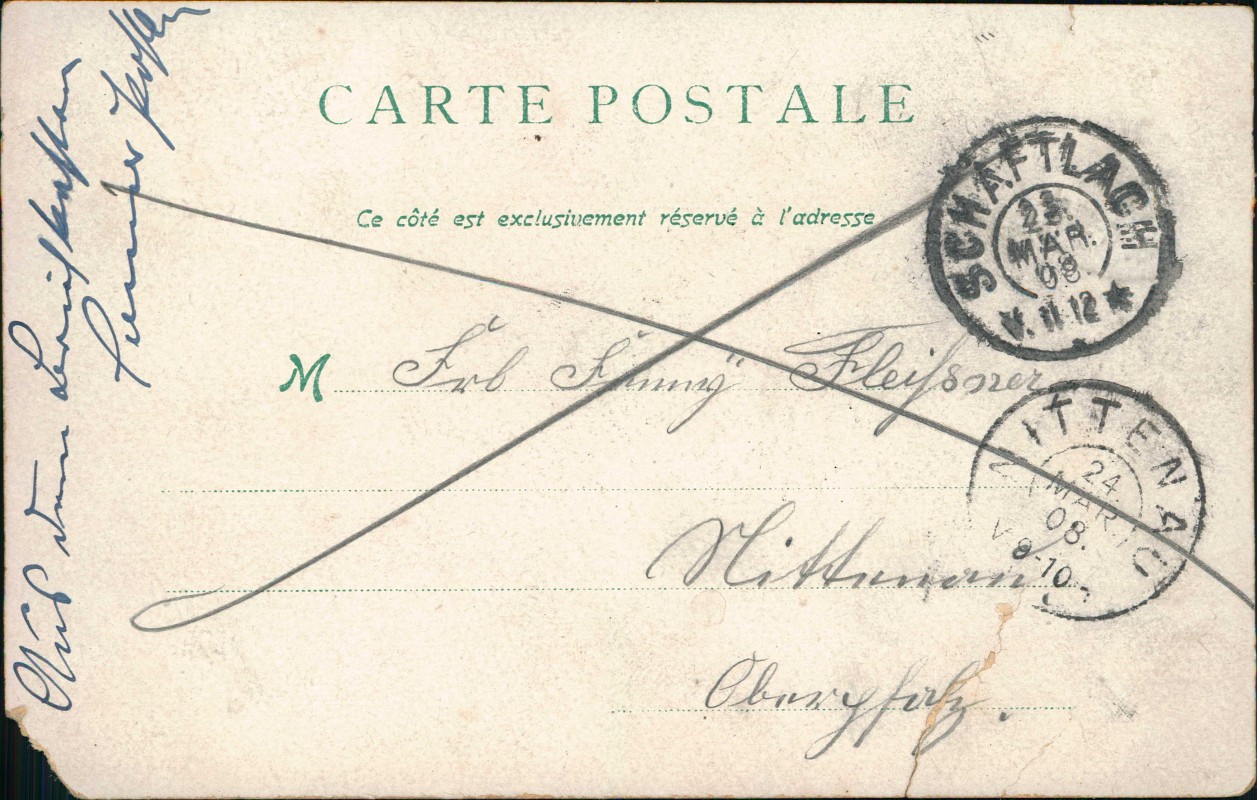 CARTE POSTALE
Ce côté est exclusivement réservé à l'adresse
M Frl Fanny Fleißner
Nittenau
Oberpfalz.
SCHAFTLACH
23.
MAR.
08
V. 11-12
NITTENAU
24
MAR.
08.
V 8-10
Aus dem